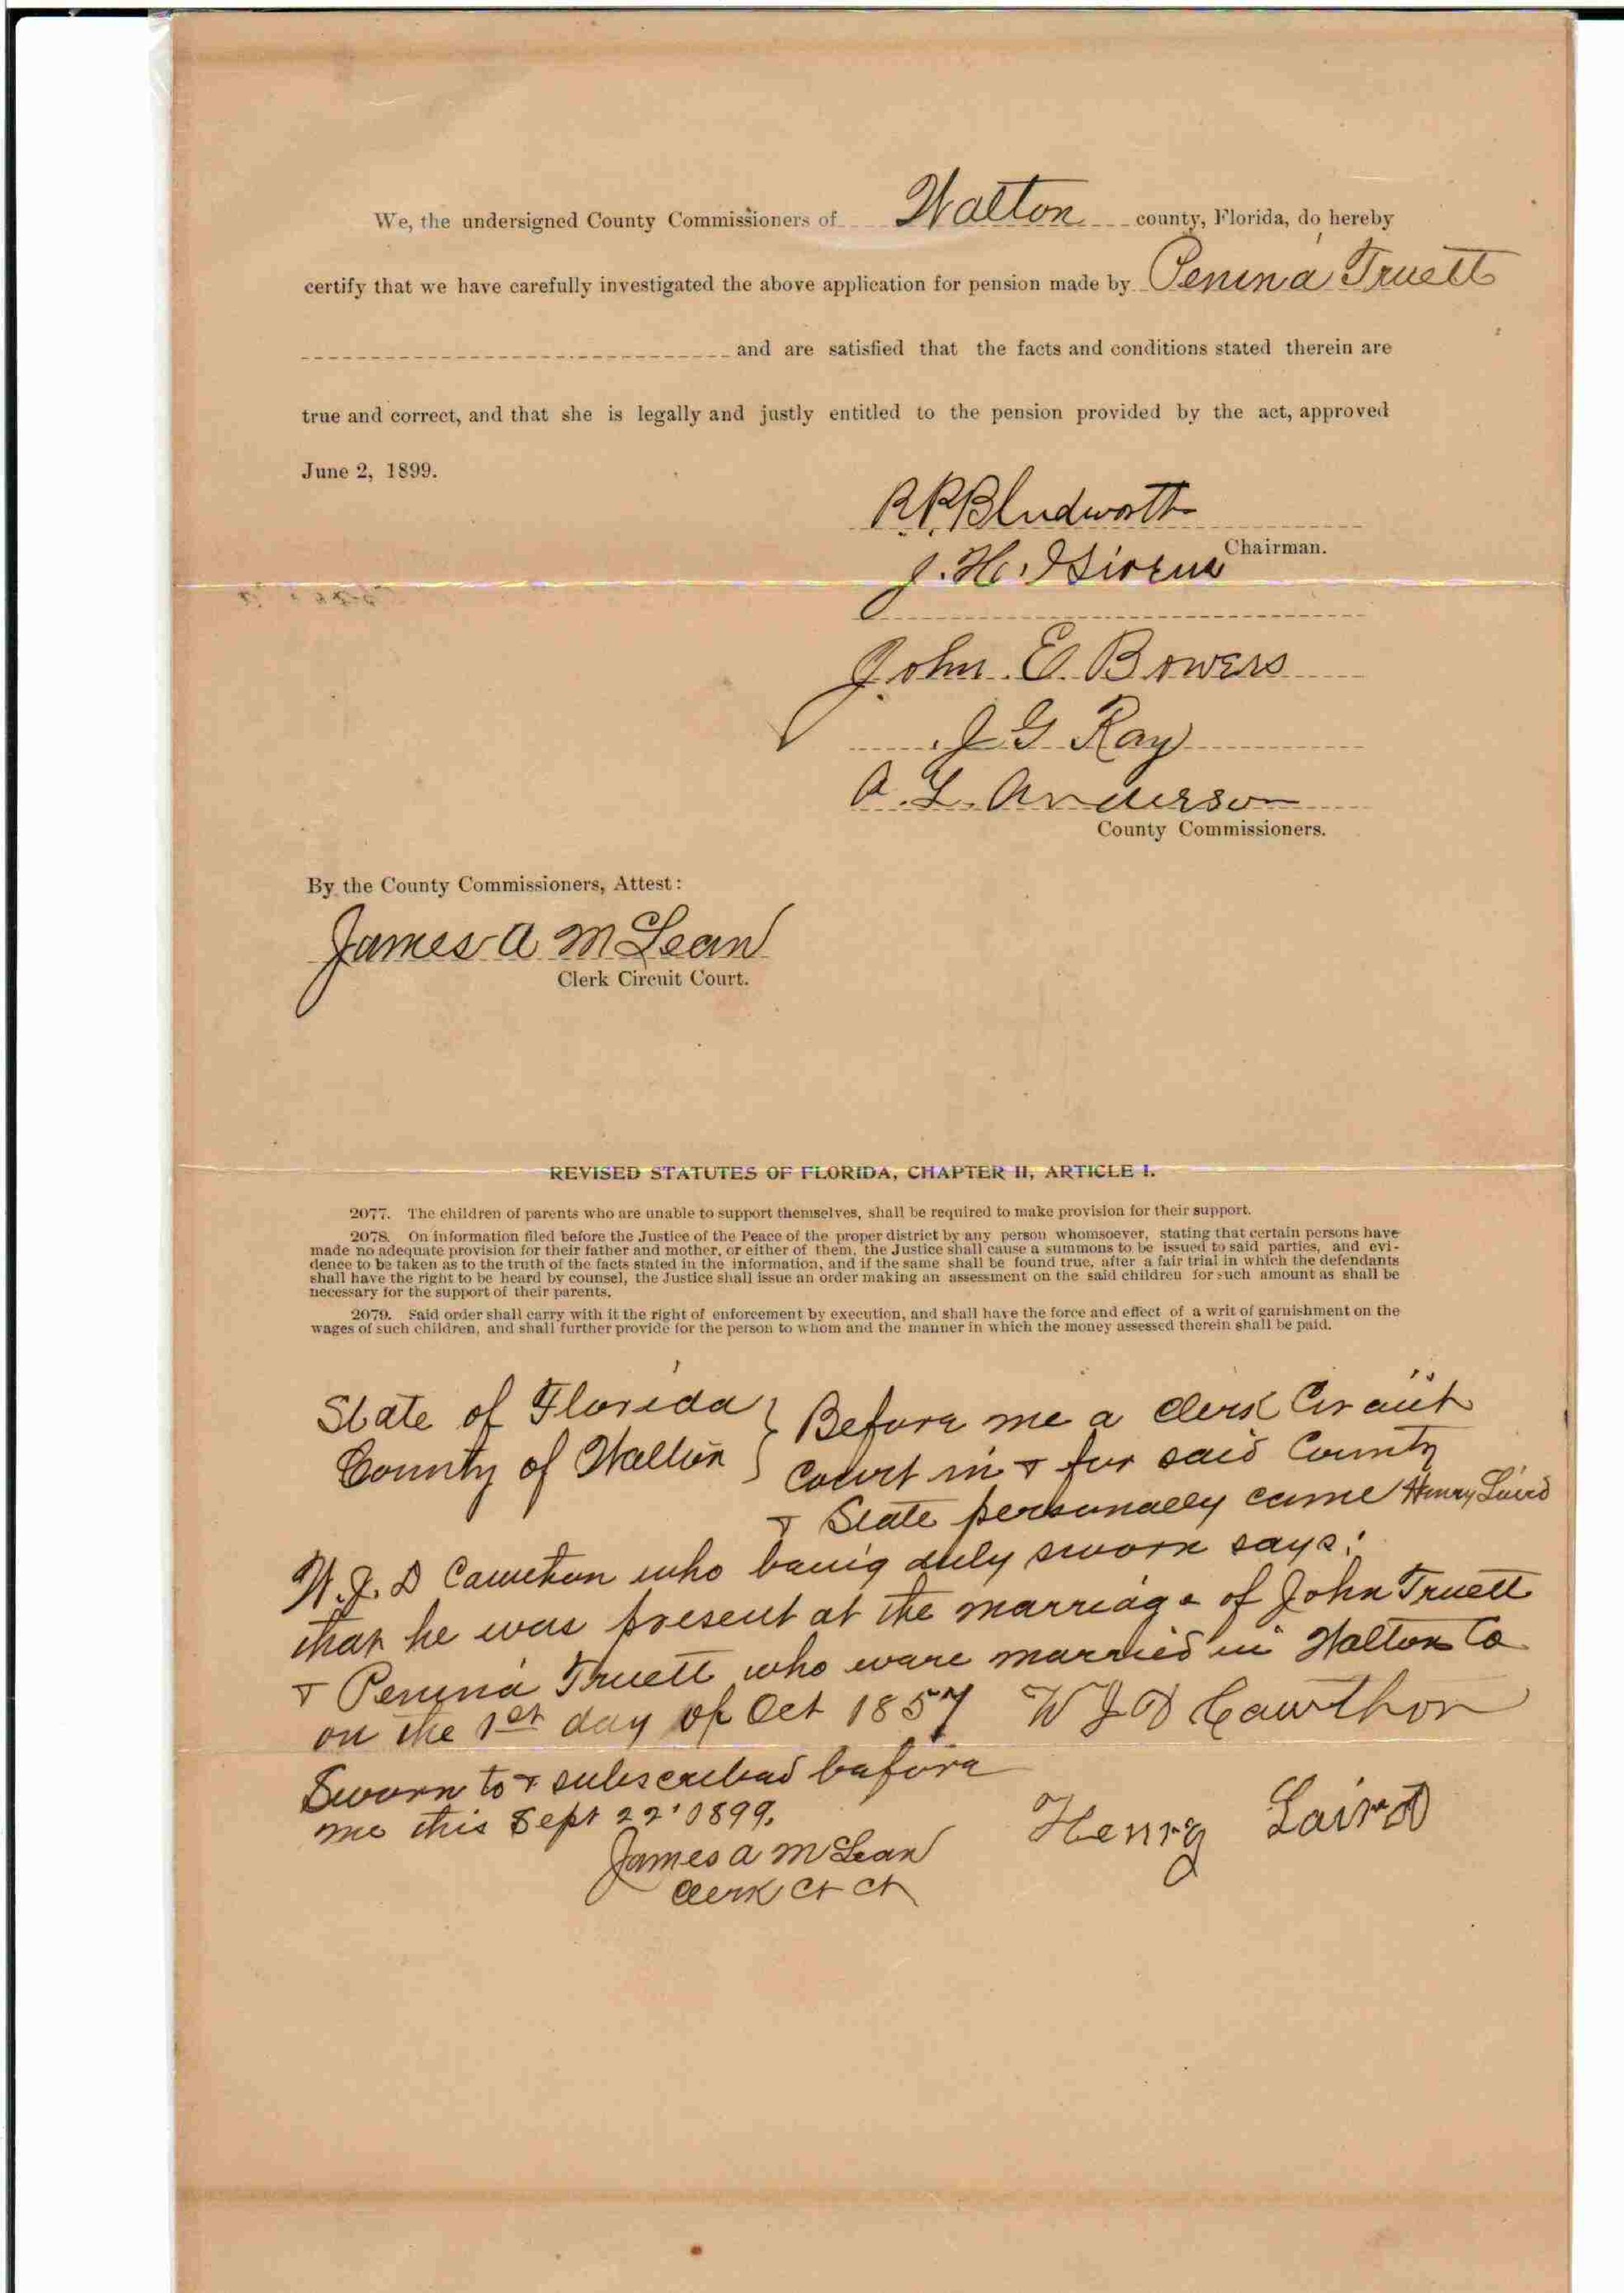 We, the undersigned County Commissioners of Walton county, Florida, do hereby
certify that we have carefully investigated the above application for pension made by Penina Truett
and are satisfied that the facts and conditions stated therein are
true and correct, and that she is legally and justly entitled to the pension provided by the act, approved
June 2, 1899.
R.R. Bludworth
Chairman.
J. H.
John E. Bowers
J G Ray
A. L. Anderson
County Commissioners.
By the County Commissioners, Attest:
James A McLean
Clerk Circuit Court.
REVISED STATUTES OF FLORIDA, CHAPTER II, ARTICLE I.
2077. The children of parents who are unable to support themselves, shall be required to make provision for their support.
2078. On information filed before the Justice of the Peace of the proper district by any person whomsoever, stating that certain persons have
made no adequate provision for their father and mother, or either of them, the Justice shall cause a summons to be issued to said parties, and evi-
dence to be taken as to the truth of the facts stated in the information, and if the same shall be found true, after a fair trial in which the defendants
shall have the right to be heard by counsel, the Justice shall issue an order making an assessment on the said children for such amount as shall be
necessary for the support of their parents.
2079. Said order shall carry with it the right of enforcement by execution, and shall have the force and effect of a writ of garnishment on the
wages of such children, and shall further provide for the person to whom and the manner in which the money assessed therein shall be paid.
State of Florida } Before me a Clerk Circuit
County of Walton } Court in & for said County
& State personally came Henry Laird
W. J. D Cawthon who being duly sworn says:
that he was present at the marriage of John Truett
& Penina Truett who ware married in Walton Co
on the 1st day of Oct 1857 W J D Cawthon
Sworn to & subscribed before
me this Sept 22' 1899.
Henry Laird
James A McLean
Clerk Ct Ct